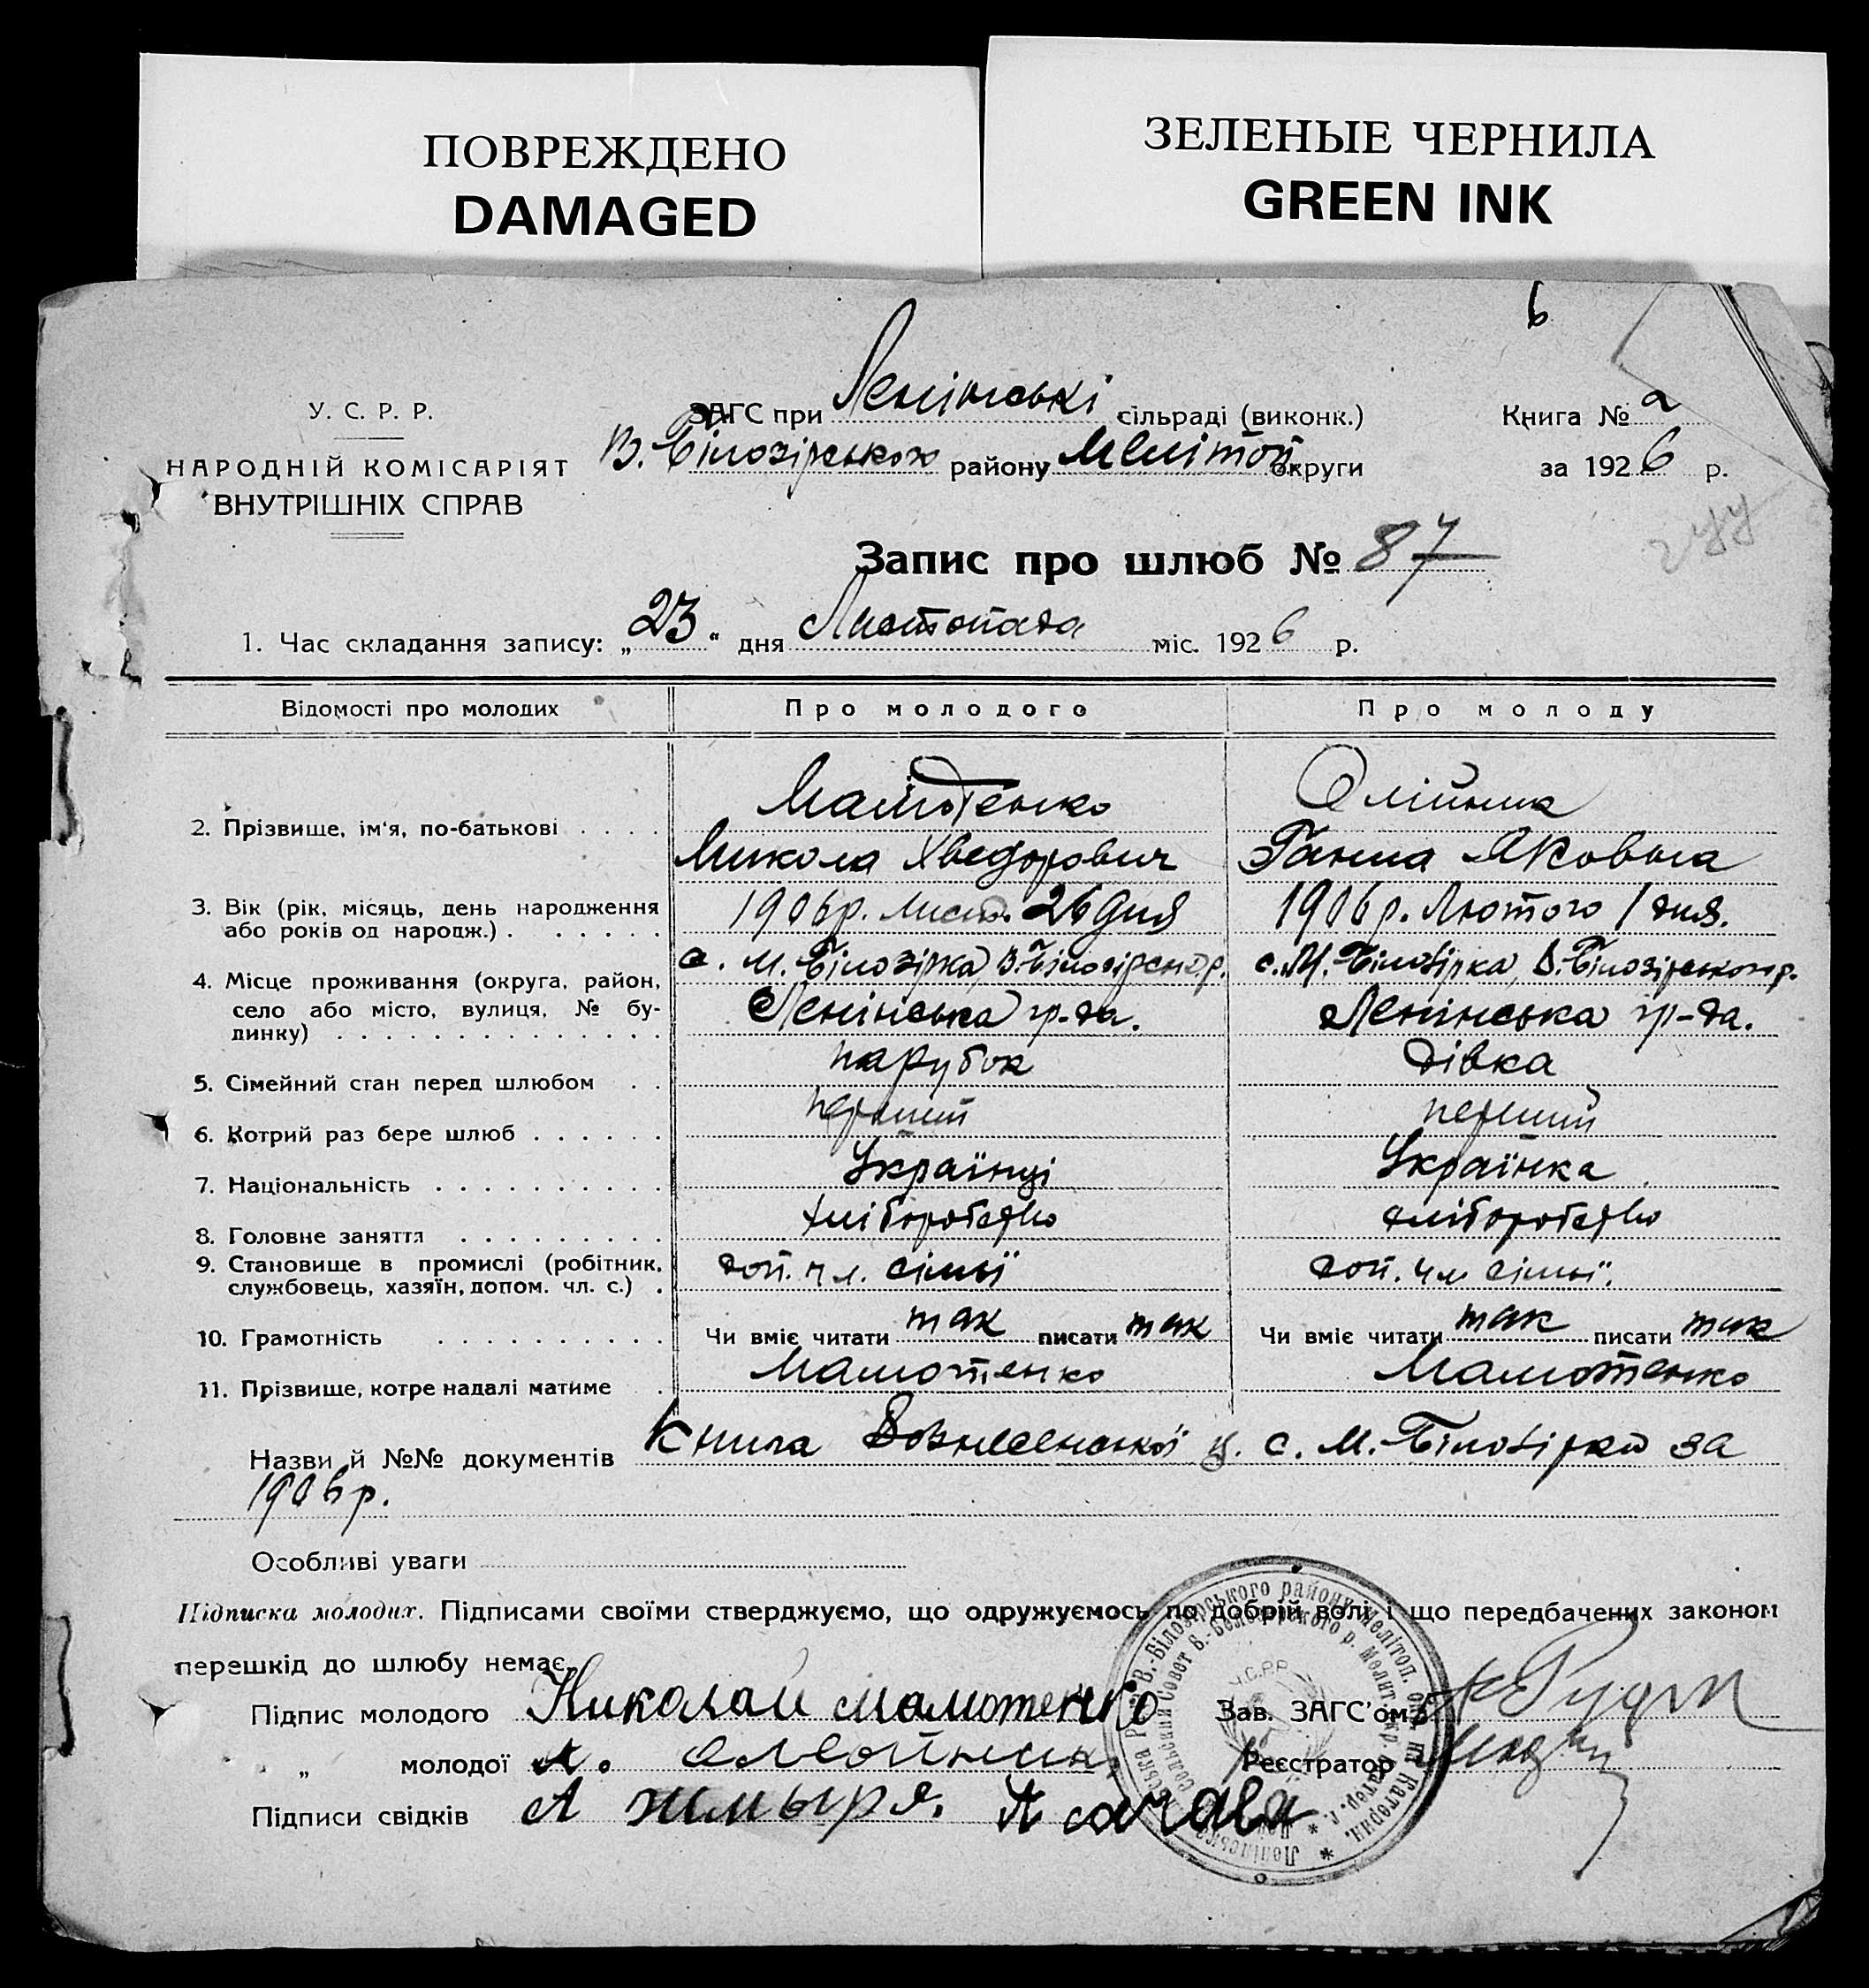 ПОВРЕЖДЕНО
DAMAGED
ЗЕЛЕНЫЕ ЧЕРНИЛА
GREEN INK
6
У. С. Р. Р.
НАРОДНІЙ КОМІСАРІЯТ
ВНУТРІШНІХ СПРАВ
ЗАГС при Ленінські сільраді (виконк.)
В. Білозірськож району Мелітоп. округи
Книга № 2
за 1926 р.
Запис про шлюб № 87
1. Час складання запису: „23“ дня Листопада міс. 1926 р.
Відомості про молодих Про молодого Про молоду
2. Прізвище, ім'я, по-батькові . . . . Мамотенко Олійник
Микола Хведорович Ганна Яковна
3. Вік (рік, місяць, день народження або років од народж.) . . . . . . 1906р. Лист. 26 дня 1906р. Лютого 1 дня.
4. Місце проживання (округа, район, село або місто, вулиця, № будинку) с. М. Білозірка, В. Білозірськ.р. с. М. Білозірка, В. Білозірського р.
Ленінська гр-да. Ленінська гр-да.
5. Сімейний стан перед шлюбом . . парубок дівка
6. Котрий раз бере шлюб . . . . . . перший перший
7. Національність . . . . . . . . . . Українці Українка
8. Головне заняття . . . . . . . . . хліборобство хліборобство
9. Становище в промислі (робітник, службовець, хазяїн, допом. чл. с.) . доп. чл. сімьї доп. чл сімьї.
10. Грамотність . . . . . . . . . . Чи вміє читати так писати так Чи вміє читати так писати так
11. Прізвище, котре надалі матиме . Мамотенко Мамотенко
Назви й №№ документів Книга Вознесенської ц. с. М. Білозірки за
1906р.
Особливі уваги
Підписка молодих. Підписами своїми стверджуємо, що одружуємось по добрій волі і що передбачених законом
перешкід до шлюбу немає.
Підпис молодого Николай мамотенко Зав. ЗАГС'ом
„ молодої А. олейник Реєстратор
Підписи свідків А жмыря.
У.С.Р.Р.